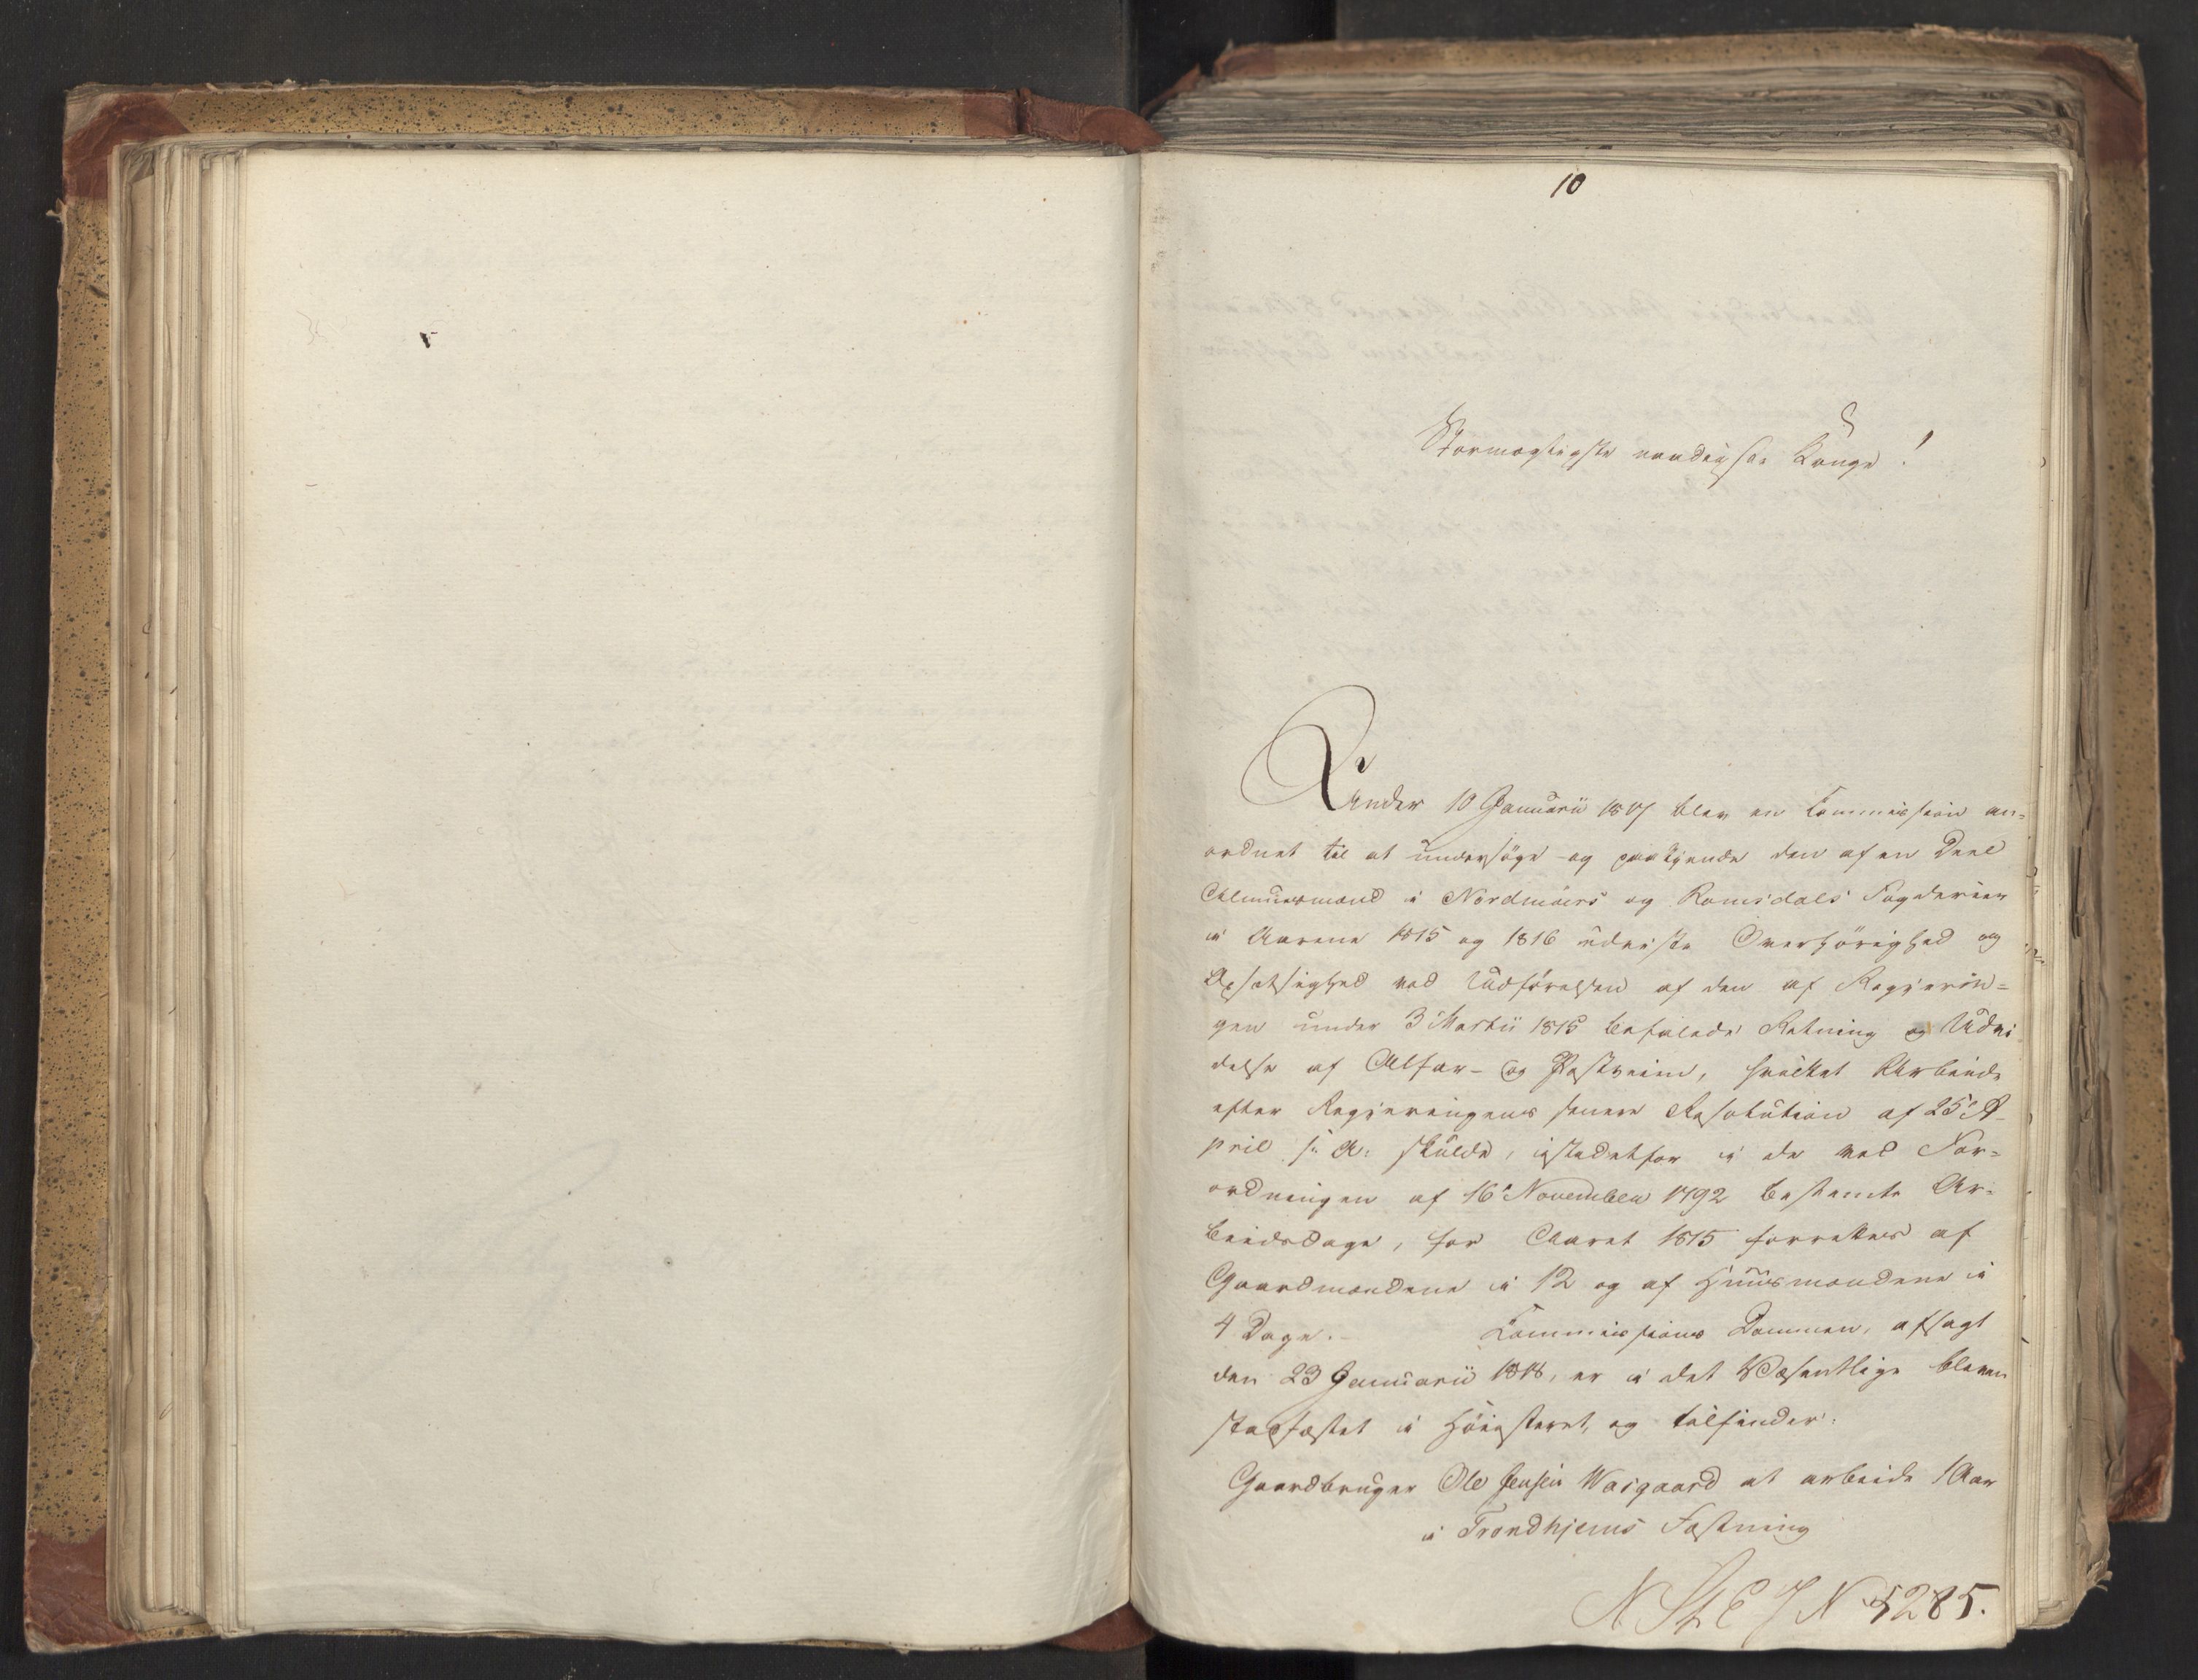 10
Stormægtigste naadigste Konge!
Under 10 Januarii 1817 blev en Commission an=
ordnet til at undersöge og paakjende den af en Deel
Almuesmænd i Nordmöers og Romsdals Fogderier
i Aarene 1815 og 1816 udviste Overhörighed og
Opsætsighed ved Udförelsen af den af Regjerin=
gen under 3 Martii 1815 befalede Retning og Udvi
delse af Alfar- og Postveien, hvilket Arbeide
efter Regjeringens senere Resolution af 25 A-
pril s: A: skulde, istedetfor i de ved For=
ordningen af 16 November 1792 bestemte Ar=
beidsdage, for Aaret 1815 forrettes af
Gaardmændene i 12 og af Huusmændene i
4 Dage. Commissions Dommen, afsagt
den 23 Januarii 1818, er i det Væsentlige bleven
stadfæstet i Höiesteret, og tilfinder:
Gaardbruger Ole Jensen Waagaard at arbeide 1 Aar
i Trondhjems Fæstning
N St E J N 5285.